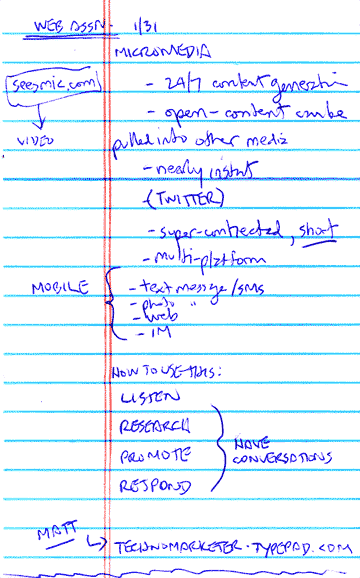 WEB ASSN - 1/31
MICROMEDIA
seesmic.com
VIDEO
- 24/7 content generation
- open - content can be
pulled into other media
- nearly instant
- (TWITTER)
- super-connected, short
- multi-platform
MOBILE
- text message/sms
- photo "
- web
- IM
HOW TO USE THIS:
LISTEN
RESEARCH
PROMOTE
RESPOND
HAVE
CONVERSATIONS
MATT
TECHNOMARKETER.TYPEPAD.COM